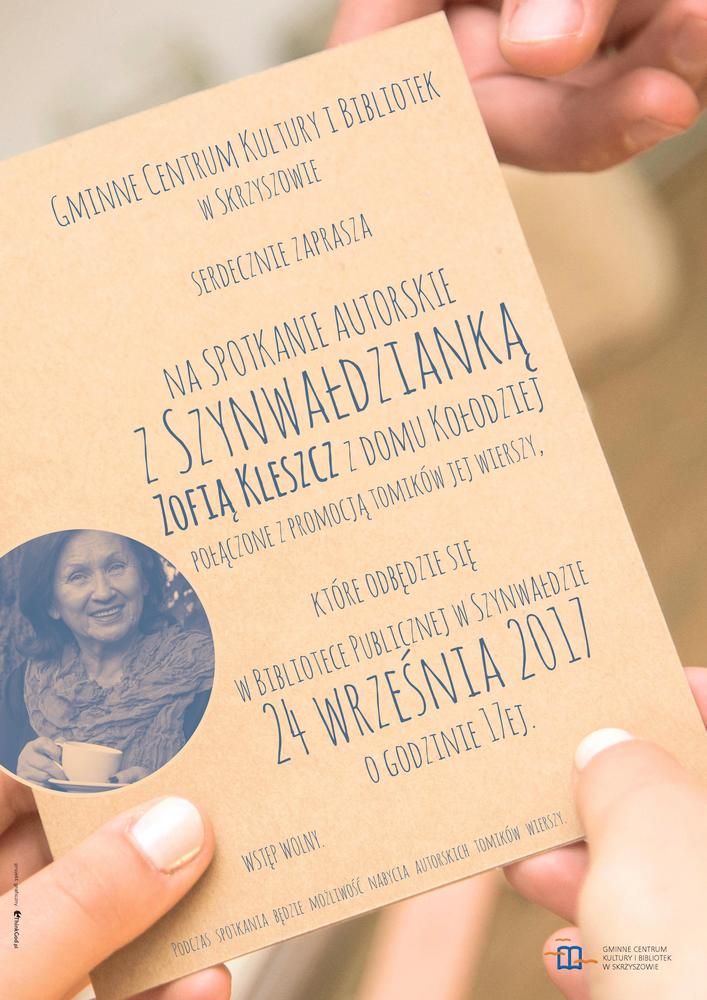 Gminne Centrum Kultury i Bibliotek
w Skrzyszowie
serdecznie zaprasza
na spotkanie autorskie
z Szynwałdzianką
Zofią Kleszcz z domu Kołodziej
połączone z promocją tomików jej wierszy,
które odbędzie się
w Bibliotece Publicznej w Szynwałdzie
24 września 2017
o godzinie 17ej.
wstęp wolny.
Podczas spotkania będzie możliwość nabycia autorskich tomików wierszy.
projekt graficzny ThinkGod.pl
GMINNE CENTRUM
KULTURY I BIBLIOTEK
W SKRZYSZOWIE